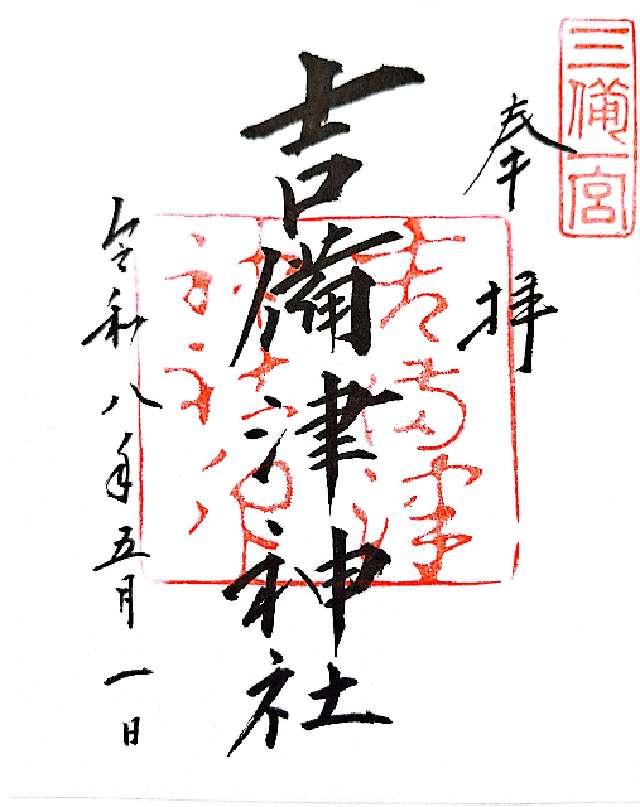 三備一宮
奉拝
吉備津神社
令和八年五月一日